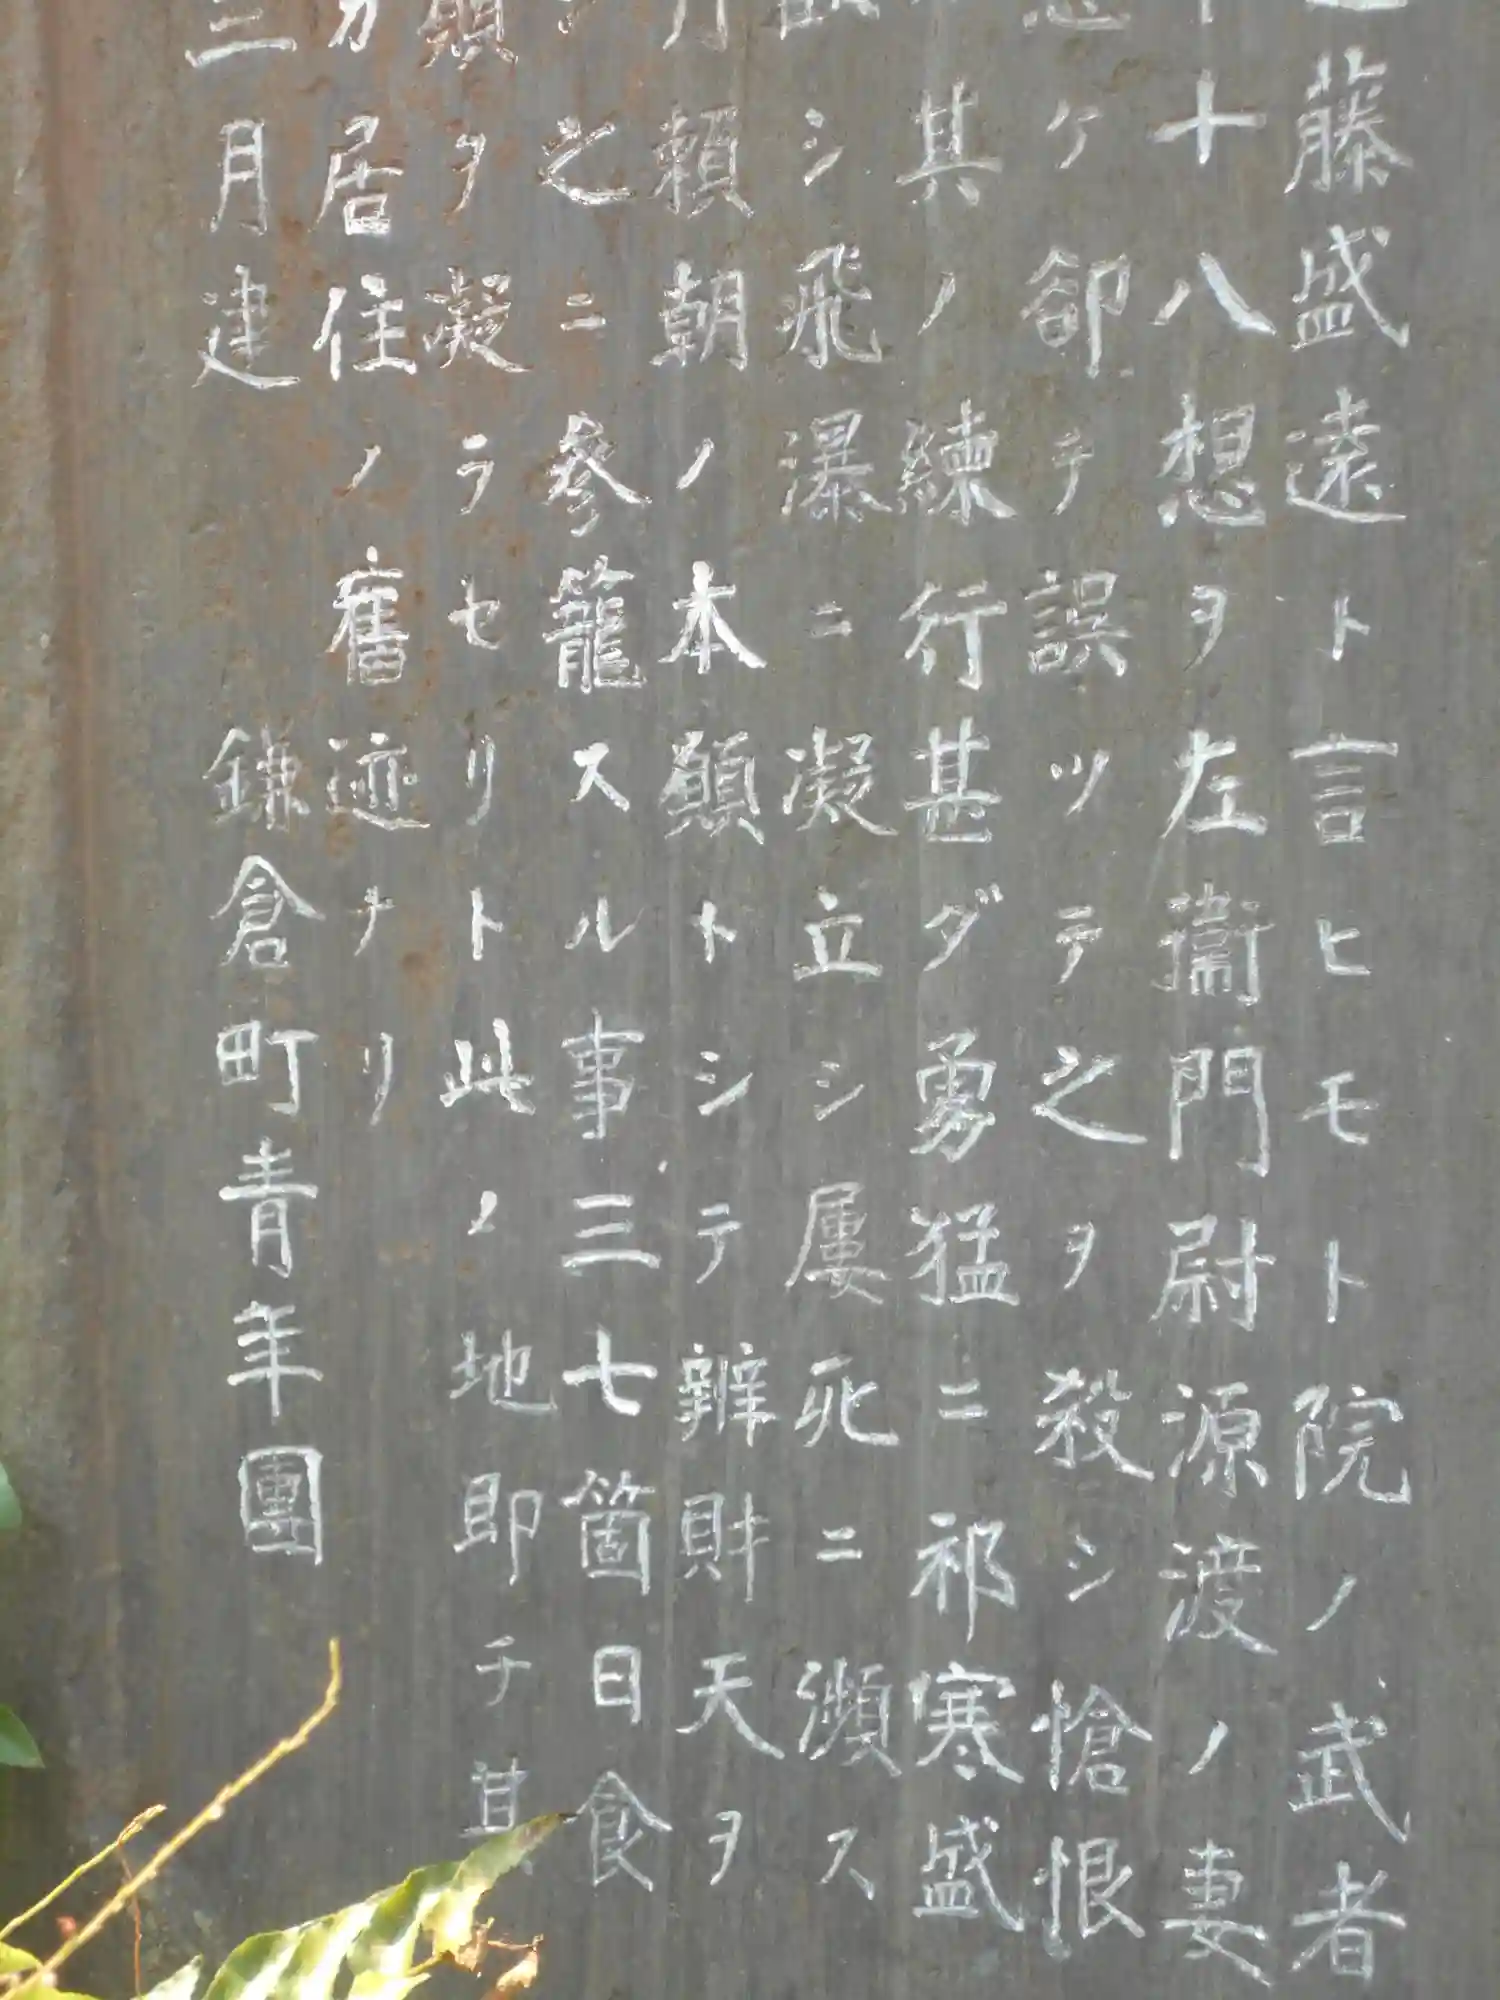 藤盛遠ト言ヒモト院ノ武者
十八想ヲ左衞門尉源渡ノ妻
ケ卻テ誤ツテ之ヲ殺シ愴恨
其ノ練行甚ダ勇猛ニ祁寒盛
シ飛瀑ニ凝立シ屢死ニ瀕ス
月頼朝ノ本願トシテ辨財天ヲ
之ニ參籠スル事三七箇日食
願ヲ凝ラセリト此ノ地即チ其
居住ノ舊迹ナリ
三月建 鎌倉町青年團